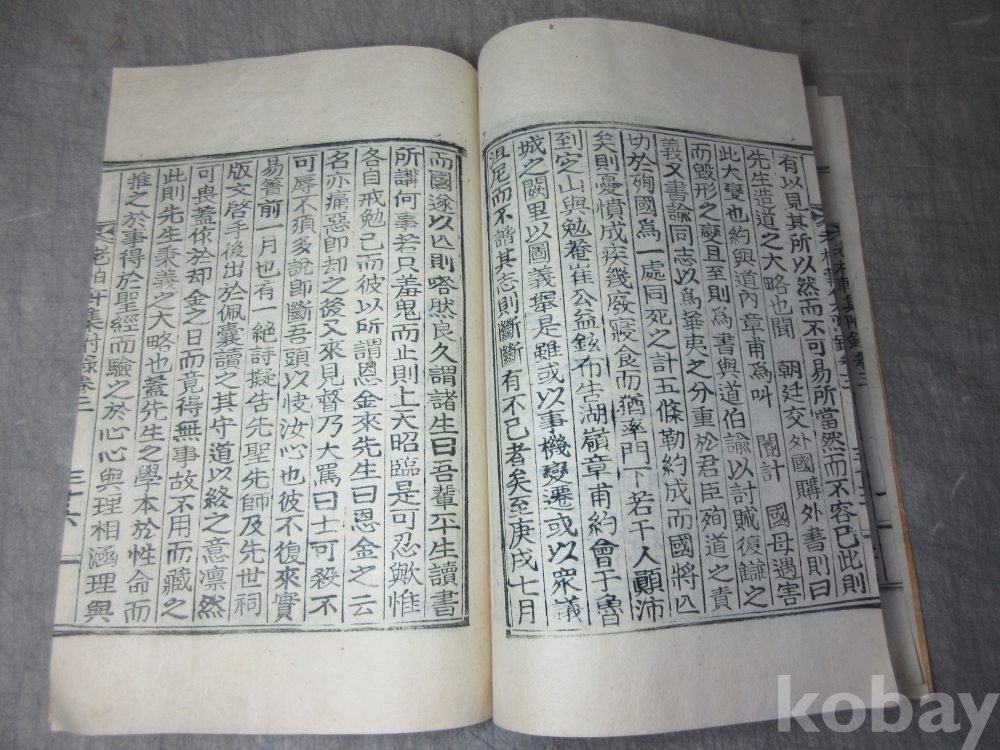 有以見其所以然而不可易所當然而不容已此則
先生造道之大略也聞 朝廷交外國購外書則曰
此大變也約與道內章甫爲叫 閤計 國母遇害
而毁形之變且至則爲書與道伯諭以討賊復讎之
義又書諭同志以爲華夷之分重於君臣殉道之責
切於殉國爲一處同死之計五條勒約成而國將亾
矣則憂憤成疾幾廢寢食而猶率門下若干人顚沛
到定山與勉菴崔公益鉉布告湖嶺章甫約會于魯
城之闕里以圖義擧是雖或以事機變遷或以衆議
沮尼而不諧其志則斷斷有不已者矣至庚戌七月
而國遂以亾則嗒然良久謂諸生曰吾輩平生讀書
所講何事若只羞鬼而止則上天昭臨是可忍歟惟
各自戒勉已而彼以所謂恩金來先生曰恩金之云
名亦痛惡卽却之後又來見督乃大罵曰士可殺不
可辱不須多說卽斷吾頭以快汝心也彼不復來實
易簀前一月也有一絶詩擬告先聖先師及先世祠
版文啓手後出於佩囊讀之其守道以終之意凛然
可畏盖作於却金之日而竟得無事故不用而藏之
此則先生秉義之大略也盖先生之學本於性命而
推之於事得於聖經而驗之於心心與理相涵理與
集附錄卷二
三十六
kobay